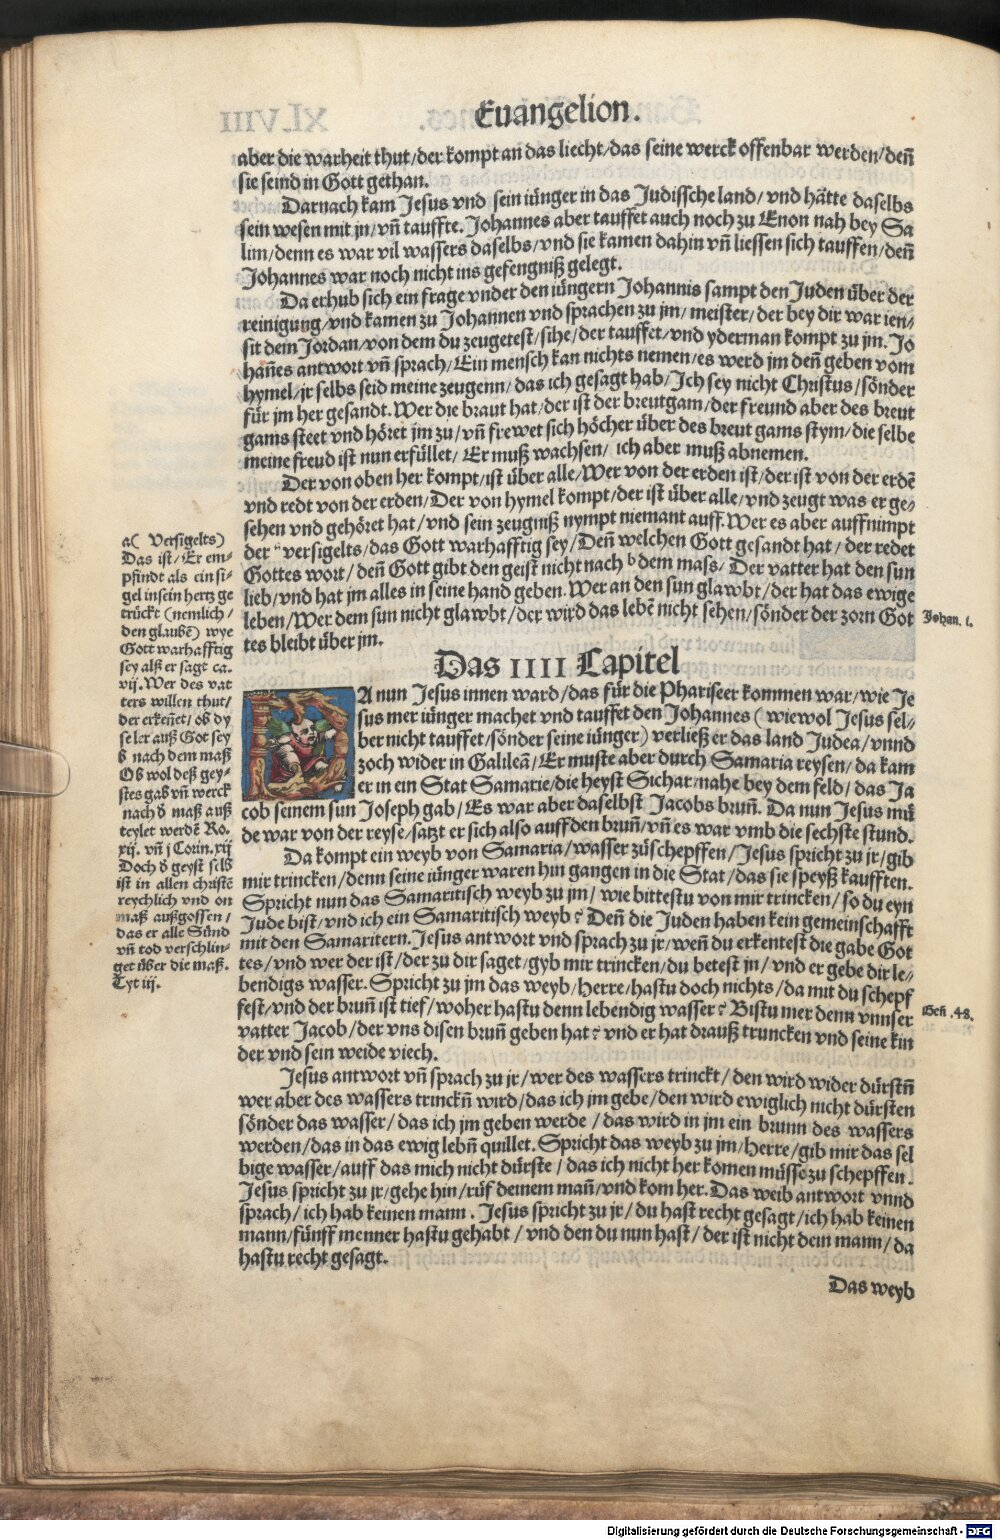 Euangelion.
aber die warheit thut/der kompt an das liecht/das seine werck offenbar werden/deñ
sie seind in Gott gethan.
Darnach kam Jesus vnd sein iünger in das Judissche land/vnd hätte daselbs
sein wesen mit jn/vñ tauffte. Johannes aber tauffet auch noch zu Enon nah bey Sa
lim/denn es war vil wassers daselbs/vnd sie kamen dahin vñ liessen sich tauffen/deñ
Johannes war noch nicht ins gefengniß gelegt.
Da erhub sich ein frage vnder den iüngern Johannis sampt den Juden über der
reinigung/vnd kamen zu Johannen vnd sprachen zu jm/meister/der bey dir war ien⸗
sit dem Jordan/von dem du zeugetest/sihe/der tauffet/vnd yderman kompt zu jm. Jo
hañes antwort vñ sprach/Ein mensch kan nichts nemen/es werd jm deñ geben vom
hymel/jr selbs seid meine zeugenn/das ich gesagt hab/Ich sey nicht Christus/sönder
für jm her gesandt. Wer die braut hat/der ist der breutgam/der freund aber des breut
gams steet vnd höret jm zu/vñ frewet sich höcher über des breut gams stym/die selbe
meine freud ist nun erfüllet/Er muß wachsen/ich aber muß abnemen.
Der von oben her kompt/ist über alle/Wer von der erden ist/der ist von der erdē
vnd redt von der erden/Der von hymel kompt/der ist über alle/vnd zeugt was er ge⸗
sehen vnd gehöret hat/vnd sein zeugniß nympt niemant auff. Wer es aber auffnimpt
der a versigelts/das Gott warhafftig sey/Deñ welchen Gott gesandt hat/der redet
Gottes wort/deñ Gott gibt den geist nicht nach b dem mass/Der vatter hat den sun
lieb/vnd hat jm alles in seine hand geben. Wer an den sun glawbt/der hat das ewige
leben/Wer dem sun nicht glawbt/der wird das lebē nicht sehen/sönder der zorn Got
tes bleibt über jm.
Johan. i.
a( Versigelts)
Das ist/Er em⸗
pfindt als ein si⸗
gel in sein hertz ge
trückt (nemlich/
den glaubē) wye
Gott warhafftig
sey alß er sagt ca.
vij. Wer des vat
ters willen thut/
der erkeñet/ob dy
se ler auß Got sey
b nach dem maß
Ob wol deß gey⸗
stes gab vñ werck
nach d̕ maß auß
teylet werdē Ro.
xij. vñ j Corin. xij
Doch d̕ geyst selb
ist in allen christē
reychlich vnd on
maß außgossen/
das er alle Sünd
vñ tod verschlin⸗
get über die maß.
Tyt iij.
Das IIII Capitel
DA nun Jesus innen ward/das für die Phariseer kommen war/wie Je
sus mer iünger machet vnd tauffet den Johannes (wiewol Jesus sel⸗
ber nicht tauffet/sönder seine iünger) verließ er das land Judea/vnnd
zoch wider in Galileā/Er muste aber durch Samaria reysen/da kam
er in ein Stat Samarie/die heyst Sichar/nahe bey dem feld/das Ja
cob seinem sun Joseph gab/Es war aber daselbst Jacobs bruñ. Da nun Jesus mü
de war von der reyse/satzt er sich also auff den bruñ/vñ es war vmb die sechste stund.
Da kompt ein weyb von Samaria/wasser züschepffen/Jesus spricht zu jr/gib
mir trincken/denn seine iünger waren hin gangen in die Stat/das sie speyß kaufften.
Spricht nun das Samaritisch weyb zu jm/wie bittestu von mir trincken/so du eyn
Jude bist/vnd ich ein Samaritisch weyb? Deñ die Juden haben kein gemeinschafft
mit den Samaritern. Jesus antwort vnd sprach zu jr/weñ du erkentest die gabe Got
tes/vnd wer der ist/der zu dir saget/gyb mir trincken/du betest jn/vnd er gebe dir le⸗
bendigs wasser. Spricht zu jm das weyb/Herre/hastu doch nichts/da mit du schepf
fest/vnd der bruñ ist tief/woher hastu denn lebendig wasser? Bistu mer denn vnnser
vatter Jacob/der vns disen bruñ geben hat? vnd er hat drauß truncken vnd seine kin
der vnd sein weide viech.
Geñ .48.
Jesus antwort vñ sprach zu jr/wer des wassers trinckt/den wird wider dürstñ
wer aber des wassers trinckñ wird/das ich jm gebe/den wird ewiglich nicht dürsten
sönder das wasser/das ich jm geben werde/das wird in jm ein brunn des wassers
werden/das in das ewig lebñ quillet. Spricht das weyb zu jm/Herre/gib mir das sel
bige wasser/auff das mich nicht dürste/das ich nicht her komen müsse zu schepffen.
Jesus spricht zu jr/gehe hin/rüf deinem mañ/vnd kom her. Das weib antwort vnnd
sprach/ich hab keinen mann. Jesus spricht zu jr/du hast recht gesagt/ich hab keinen
mann/fünff menner hastu gehabt/vnd den du nun hast/der ist nicht dein mann/da
hastu recht gesagt.
Das weyb
Digitalisierung gefördert durch die Deutsche Forschungsgemeinschaft - DFG